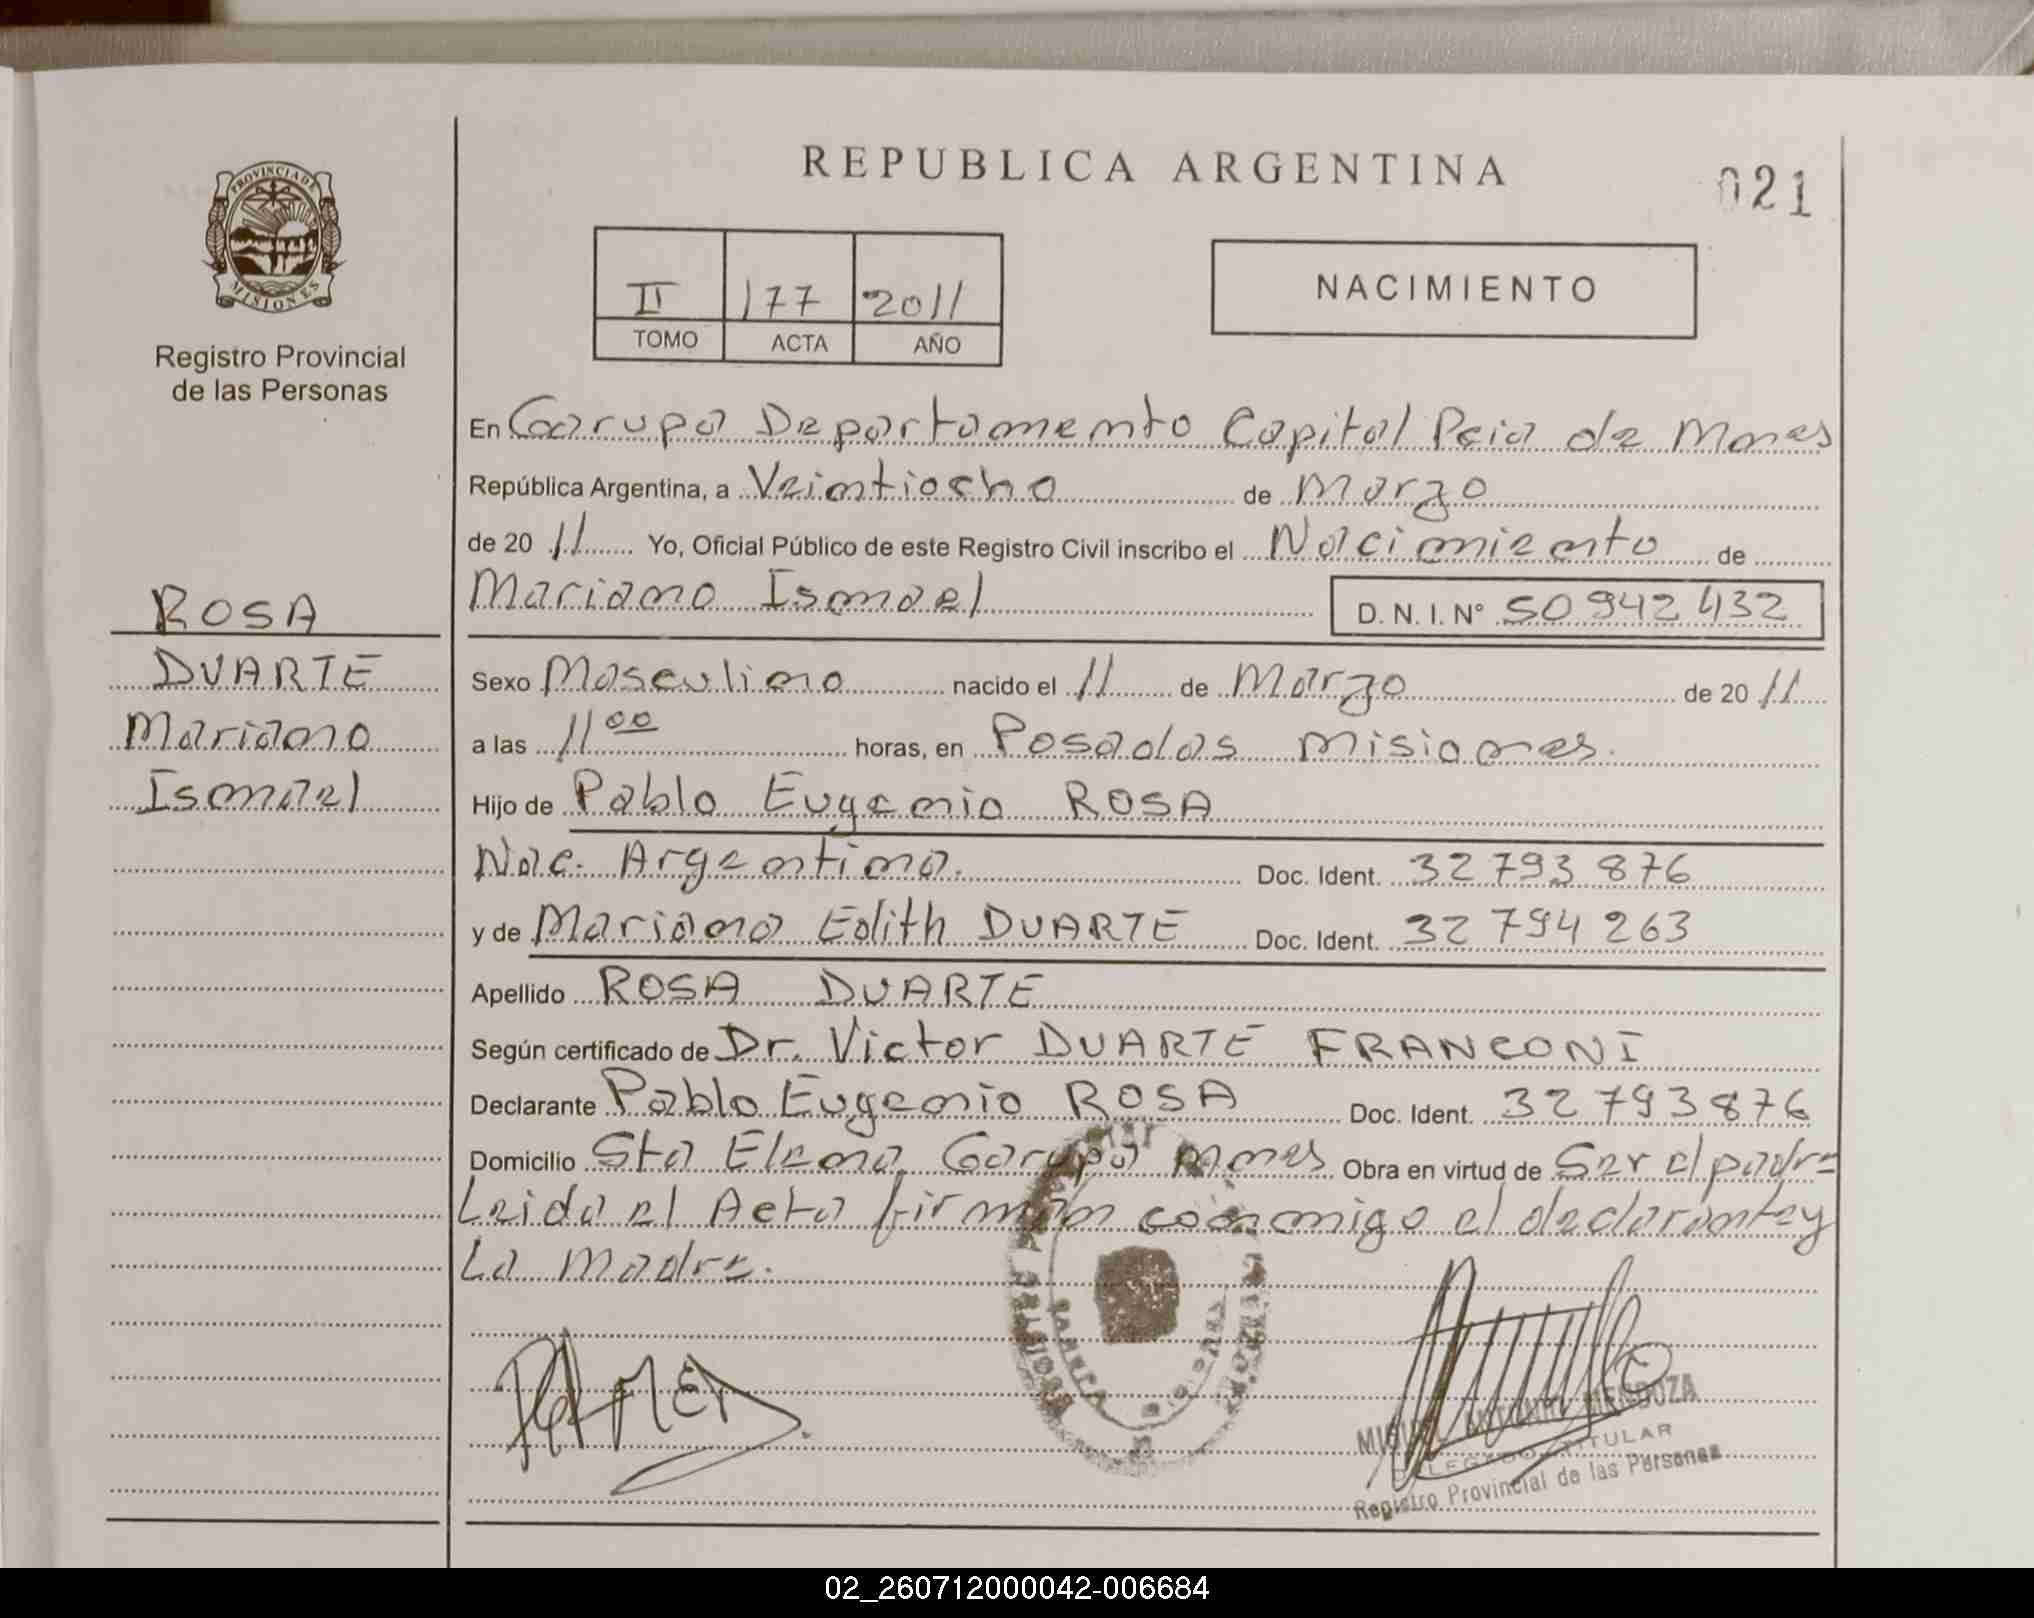 REPUBLICA ARGENTINA
021
PROVINCIA DE
MISIONES
Registro Provincial
de las Personas
II 177 2011
TOMO ACTA AÑO
NACIMIENTO
En Garupa Departamento Capital Pcia de Mnes
República Argentina, a Veintiocho de Marzo
de 20 11 Yo, Oficial Público de este Registro Civil inscribo el Nacimiento de
Mariano Ismael D. N. I. N° 50 942 432
ROSA
DUARTE
Mariano
Ismael
Sexo Masculino nacido el 11 de Marzo de 20 11
a las 11 00 horas, en Posadas Misiones.
Hijo de Pablo Eugenio ROSA
Nac. Argentina. Doc. Ident. 32 793 876
y de Mariana Edith DUARTE Doc. Ident. 32 794 263
Apellido ROSA DUARTE
Según certificado de Dr. Victor DUARTE FRANCONI
Declarante Pablo Eugenio ROSA Doc. Ident. 32 793 876
Domicilio Sta Elena Garupa Mnes Obra en virtud de Ser el padre
Leida el Acta firman conmigo el declarante y
La Madre.
MIGUEL ANTONIO MENDOZA
DELEGADO TITULAR
Registro Provincial de las Personas
02_260712000042-006684